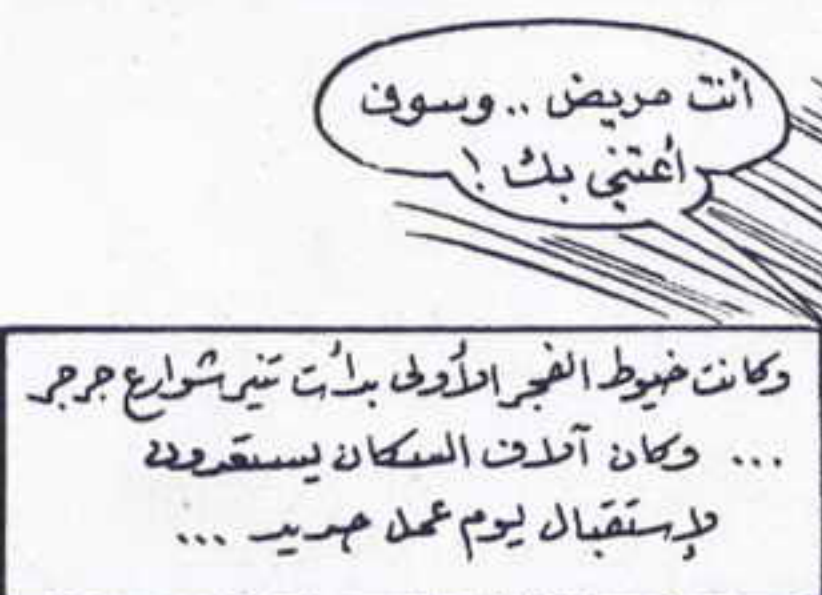 أنت مريض .. وسوف
أعتني بك !
وكانت خيوط الفجر الأولى بدأت تنير شوارع جرجر
... وكان آلاف السكان يستعدون
لإستقبال يوم عمل جديد ...